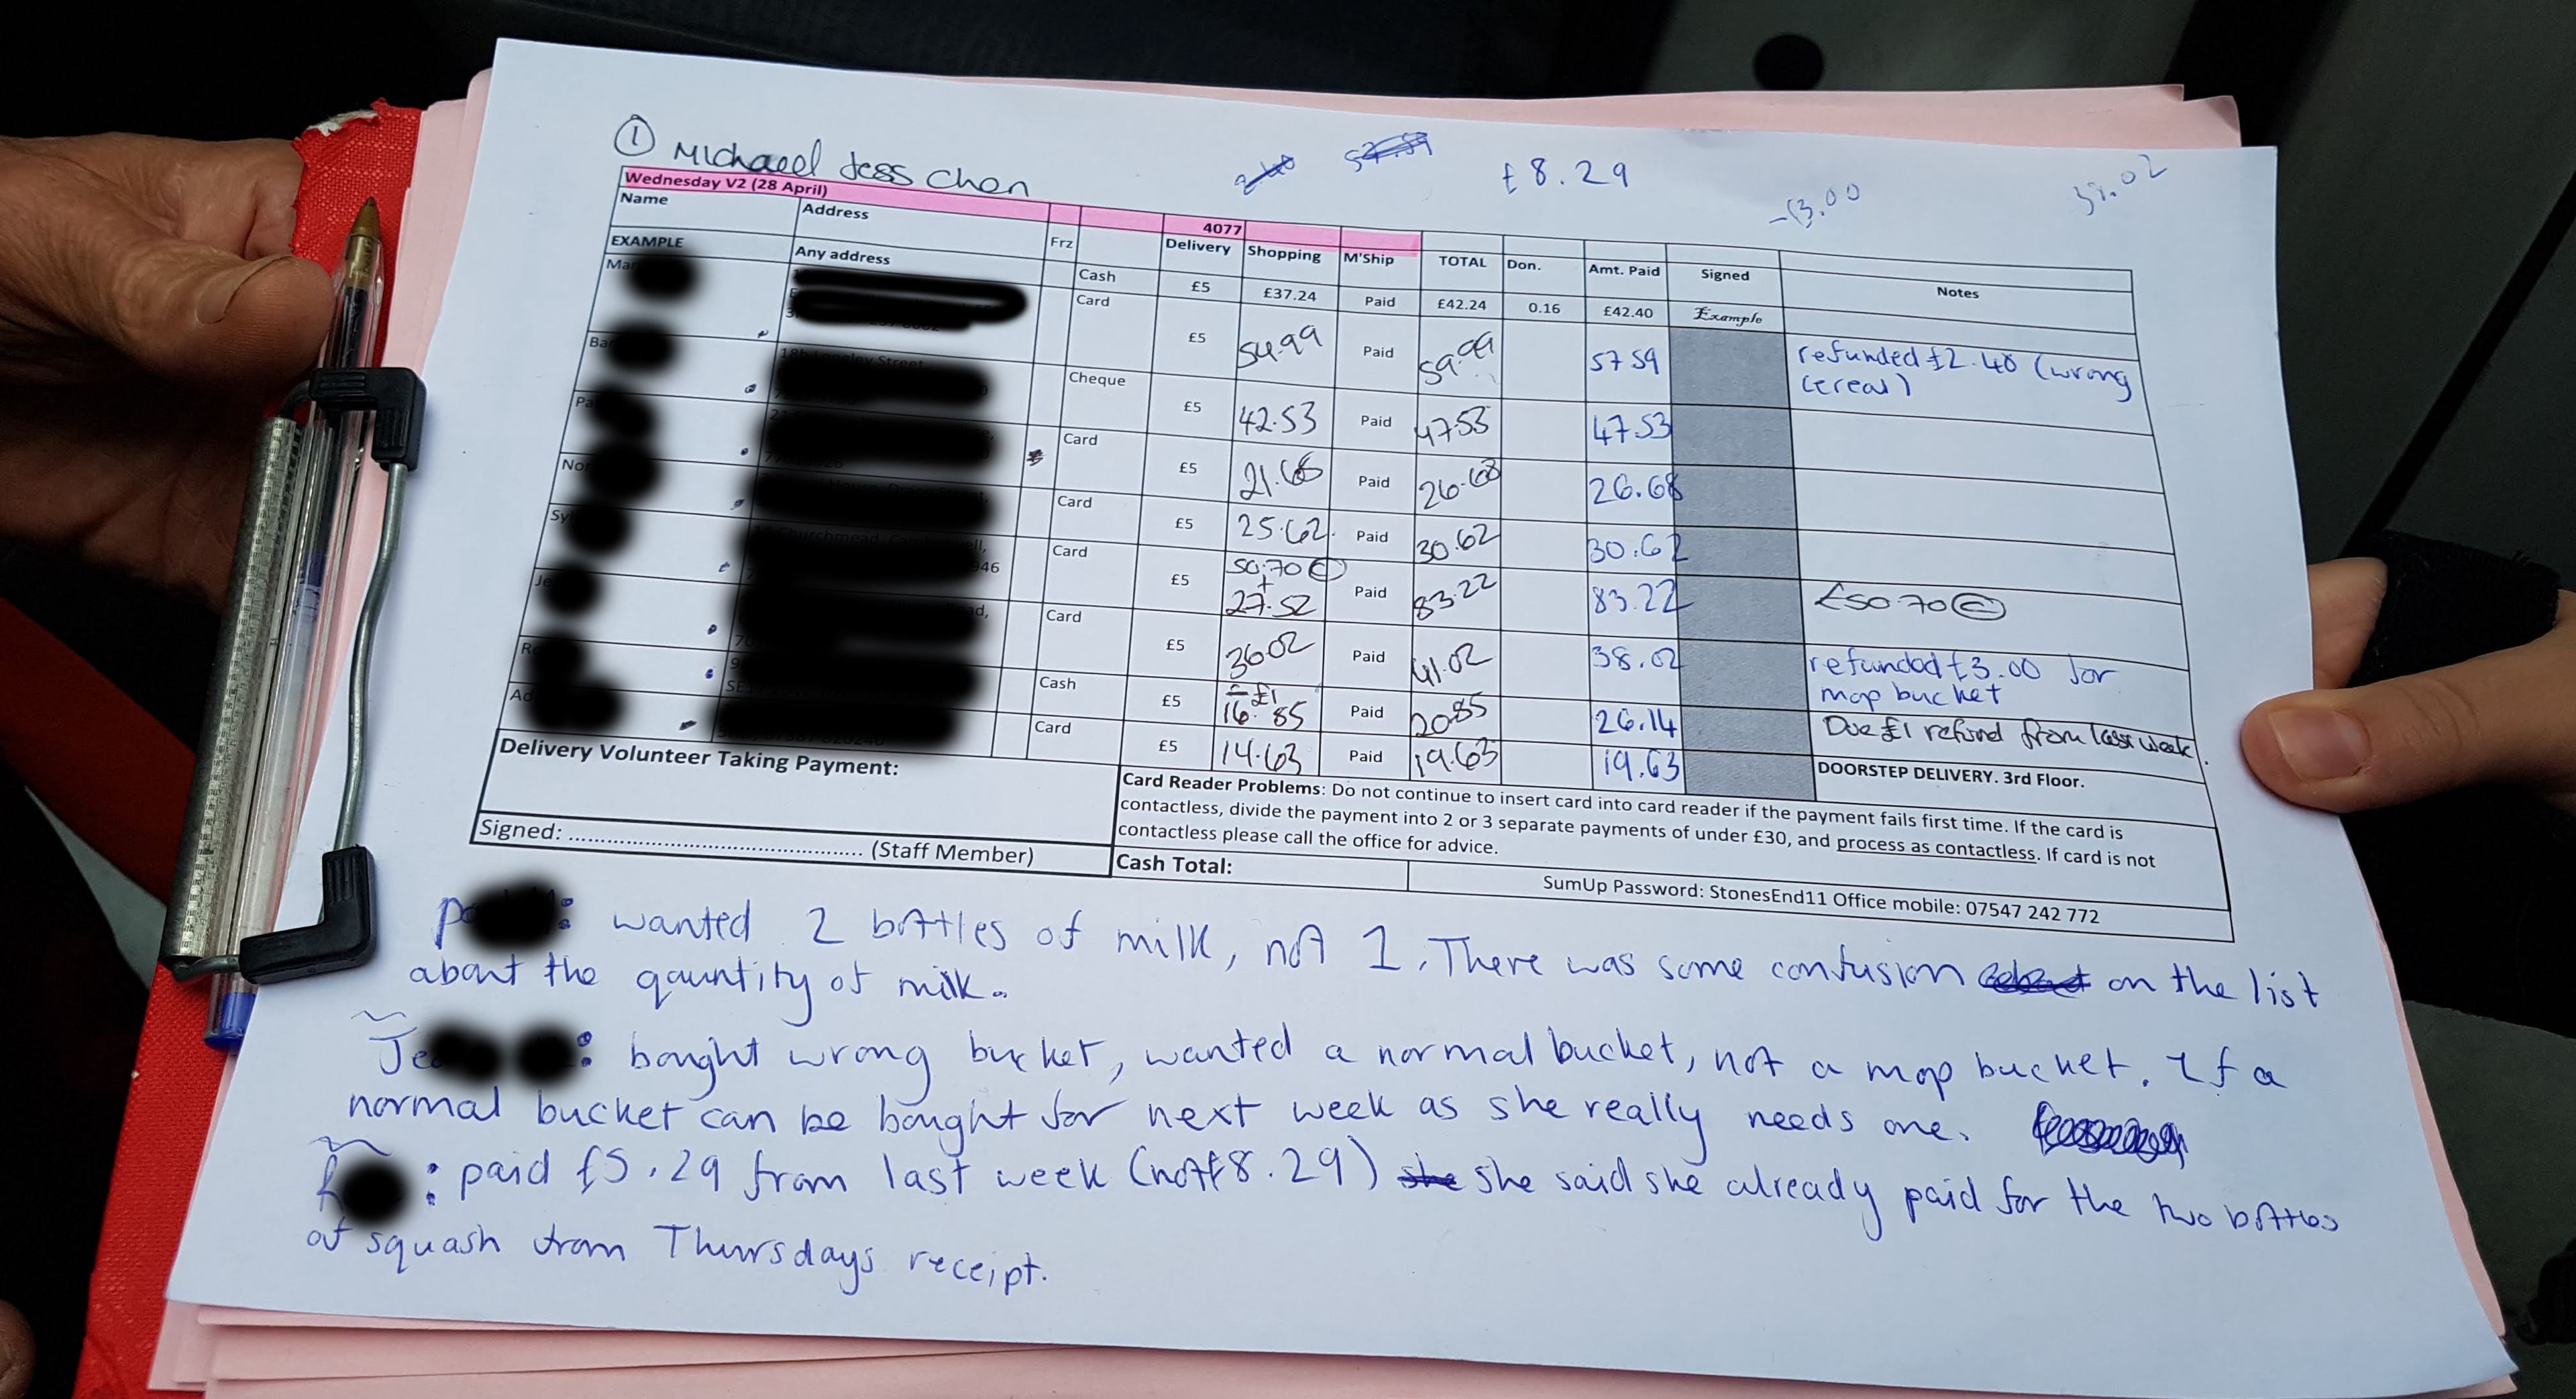 ① Michael Jess Chen
2.40 57.59 £8.29 -£3.00 38.02
Wednesday V2 (28 April) 4077
Name Address Frz Delivery Shopping M'Ship TOTAL Don. Amt. Paid Signed Notes
EXAMPLE Any address Cash £5 £37.24 Paid £42.24 0.16 £42.40 Example
Ma Card £5 54.99 Paid 59.99 57 59 refunded £2.40 (wrong
cereal)
Ba Cheque £5 42.53 Paid 47 53 47.53
Pa Card £5 21.68 Paid 26.68 26.68
Nor Card £5 25.62 Paid 30.62 30.62
Sy 946 Card £5 50.70 Ⓒ + 27.52 Paid 83.22 83.22 £50.70 Ⓒ
Je Card £5 36.02 Paid 41.02 38.02 refunded £3.00 for
mop bucket
R Cash £5 - £1 16.85 Paid 20.85 26.14 Due £1 refund from last week.
Ad Card £5 14.63 Paid 19.63 19.63 DOORSTEP DELIVERY. 3rd Floor.
Delivery Volunteer Taking Payment:
Card Reader Problems: Do not continue to insert card into card reader if the payment fails first time. If the card is
contactless, divide the payment into 2 or 3 separate payments of under £30, and process as contactless. If card is not
contactless please call the office for advice.
Signed: ........................................................ (Staff Member)
Cash Total:
SumUp Password: StonesEnd11 Office mobile: 07547 242 772
P : wanted 2 bottles of milk, not 1. There was some confusion on the list
about the qauntity of milk.
Je : bought wrong bucket, wanted a normal bucket, not a mop bucket. If a
normal bucket can be bought for next week as she really needs one.
R : paid £5.29 from last week (not £8.29) she she said she already paid for the two bottles
of squash from Thursdays receipt.